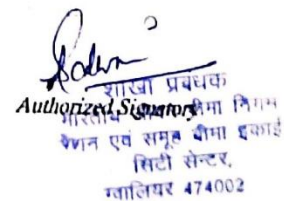 शाखा प्रबंधक
Authorized Signatory
भारतीय बीमा निगम
पेंशन एवं समूह बीमा इकाई
सिटी सेन्टर,
ग्वालियर 474002